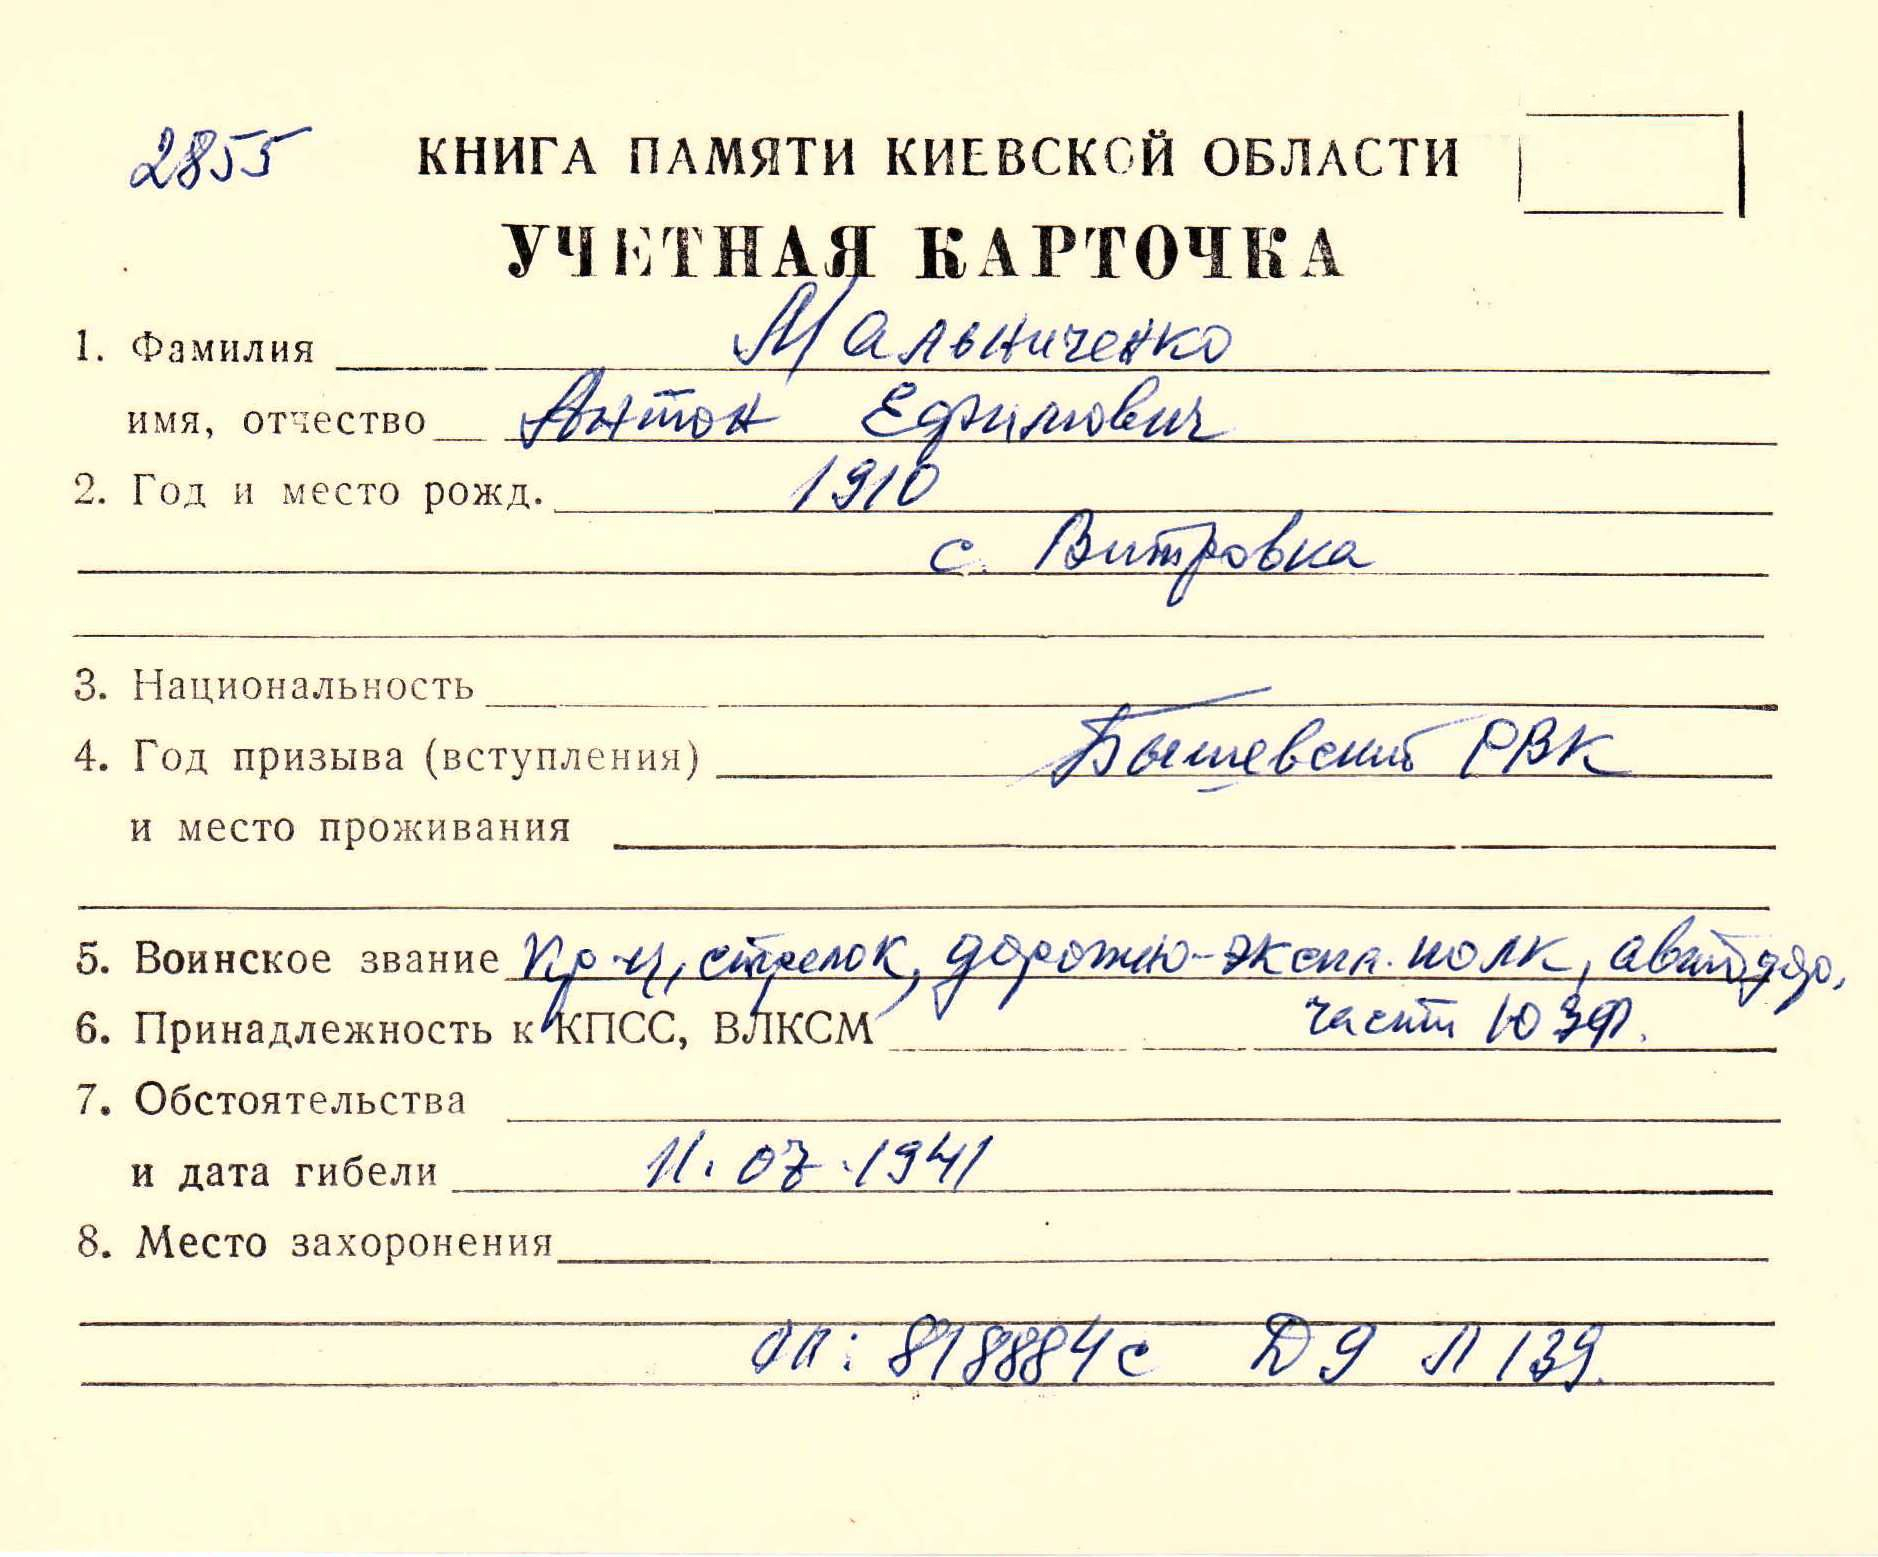 2855 КНИГА ПАМЯТИ КИЕВСКОЙ ОБЛАСТИ
УЧЕТНАЯ КАРТОЧКА
1. Фамилия Мальниченко
имя, отчество Антон Ефимович
2. Год и место рожд. 1910
с. Витровка
3. Национальность
4. Год призыва (вступления) Бышевский РВК
и место проживания
5. Воинское звание кр-ц, стрелок, дорожно-экспл. полк,
6. Принадлежность к КПСС, ВЛКСМ части ЮЗФ.
7. Обстоятельства
и дата гибели 11.07.1941
8. Место захоронения
оп: 818884с Д 9 Л 139.